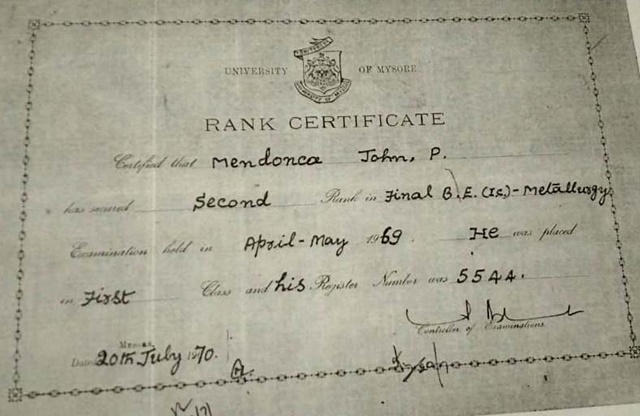 UNIVERSITY OF MYSORE
RANK CERTIFICATE
Certified that Mendonca John, P.
has secured Second Rank in Final B.E.(Ic)-Metallurgy
Examination held in April-May 1969. He was placed
in First Class and his Register Number was 5544.
Controller of Examinations
Mysore,
Dated 20th July 1970.